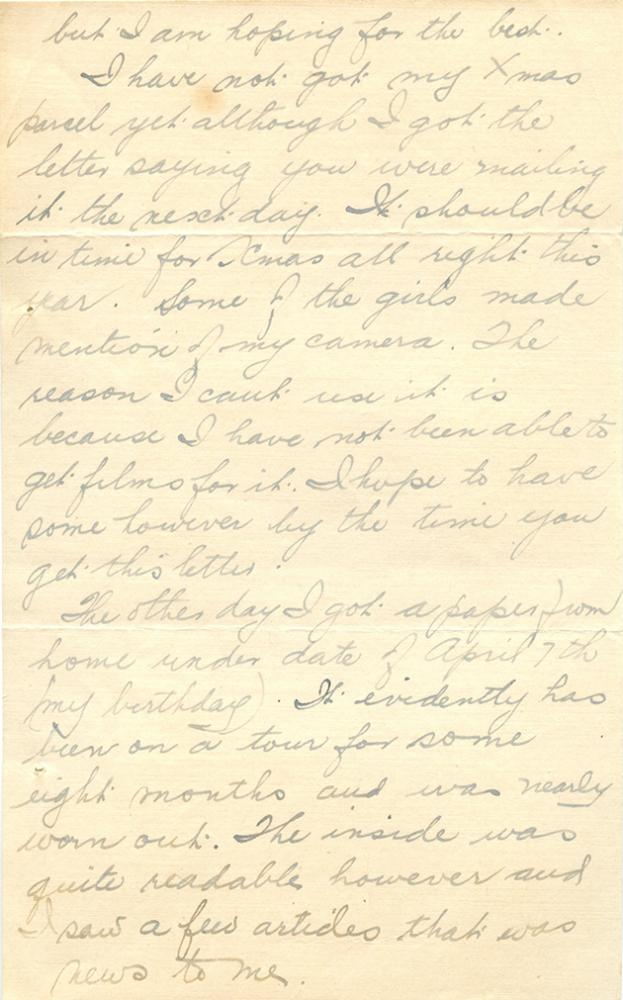 but I am hoping for the best.
I have not got my Xmas
parcel yet although I got the
letter saying you were mailing
it the next day. It should be
in time for Xmas all right this
year. Some of the girls made
mention of my camera. The
reason I can't use it is
because I have not been able to
get films for it. I hope to have
some however by the time you
get this letter.
The other day I got a paper from
home under date of April 7th
(my birthday). It evidently has
been on a tour for some
eight months and was nearly
worn out. The inside was
quite readable however and
I saw a few articles that was
news to me.